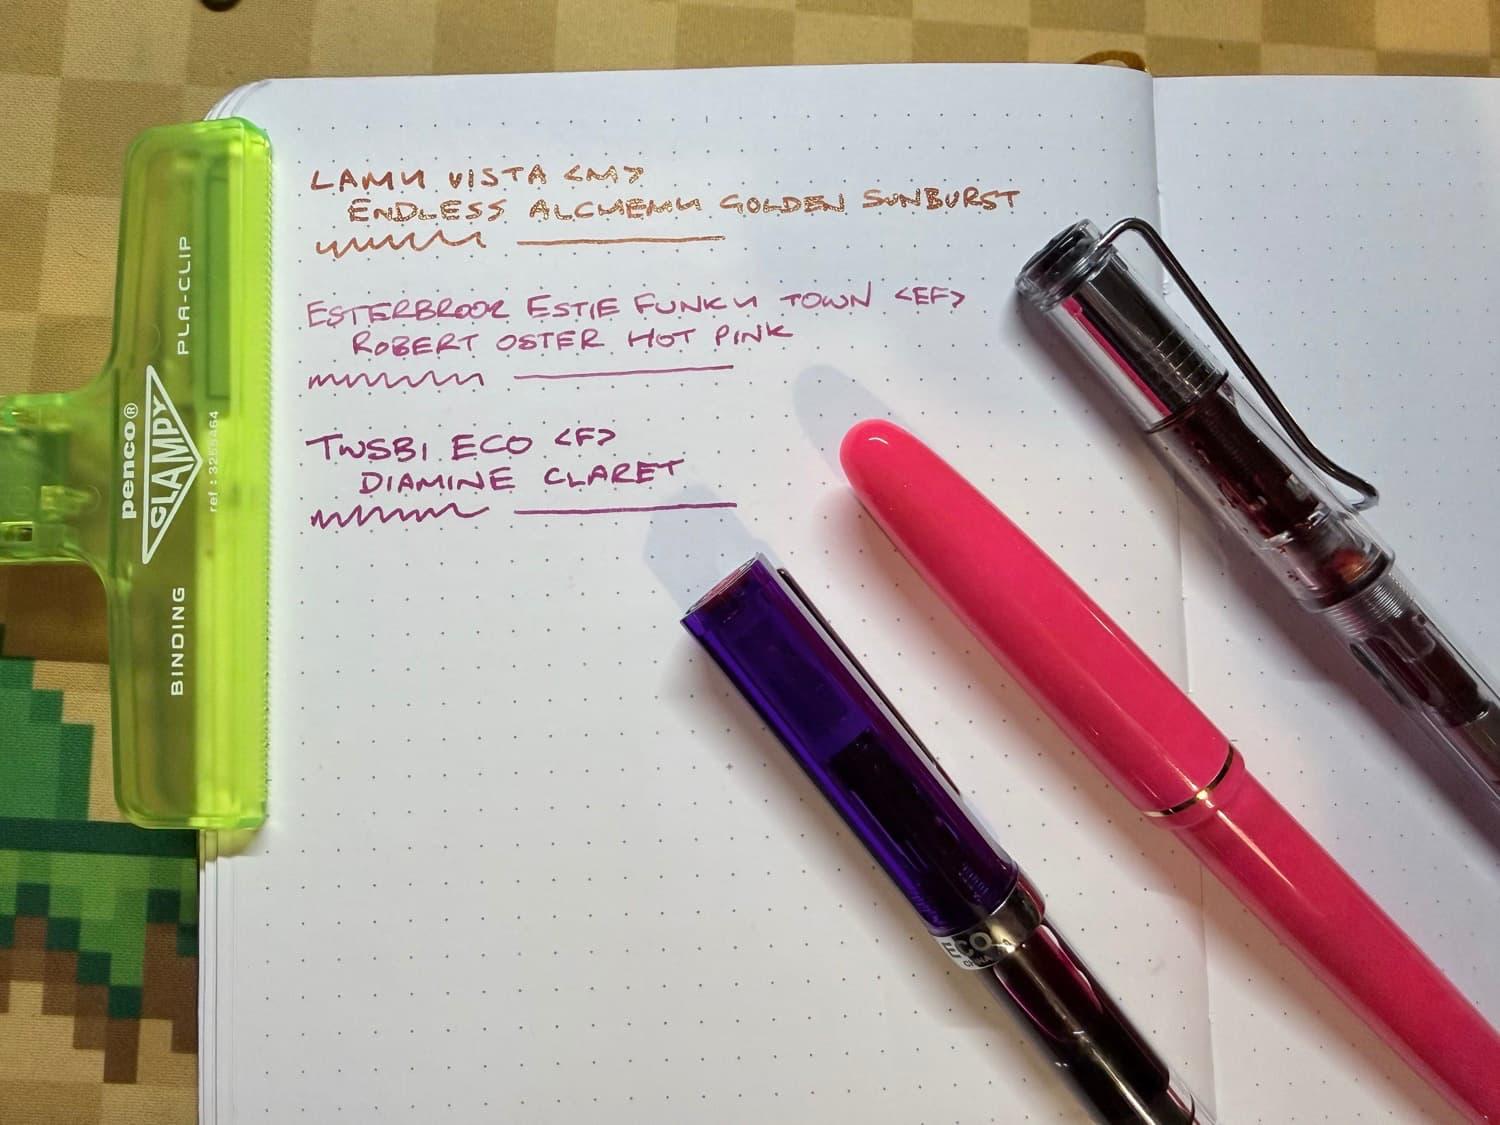 LAMY VISTA <M>
ENDLESS ALCHEMY GOLDEN SUNBURST
ESTERBROOK ESTIE FUNKY TOWN <EF>
ROBERT OSTER HOT PINK
TWSBI ECO <F>
DIAMINE CLARET
BINDING PLA-CLIP
penco®
CLAMPY
ECO